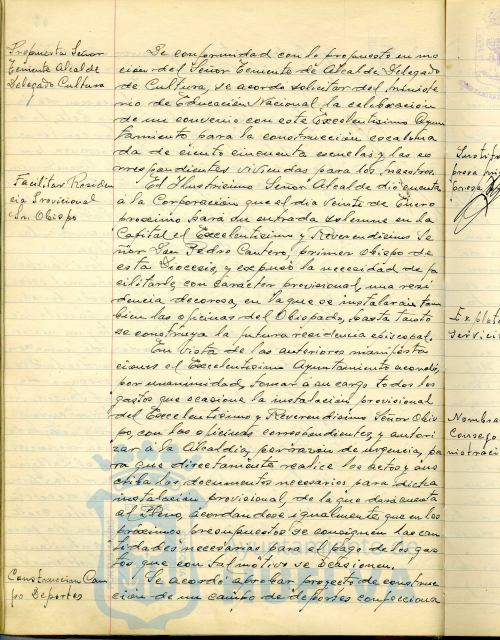 Propuesta Señor
Teniente Alcalde
Delegado Cultura
De conformidad con lo propuesto en mo
ción del Señor Teniente de Alcalde Delegado
de Cultura, se acordo solicitar del ministe
rio de Educación Nacional la celebración
de un convenio con este Excelentísimo Ayun
tamiento para la construcción escalona
da de ciento cincuenta escuelas y las co
rrespondientes viviendas para los maestros.
Facilitar Residen
cia Provisional
Sr. Obispo
El Ilustrísimo Señor Alcalde dió cuenta
a la Corporación que el día veinte de Enero
proximo hará su entrada solemne en la
Capital el Excelentísimo y Reverendísimo Se
ñor Don Pedro Cantero, primer Obispo de
esta Diocesis, y expuso la necesidad de fa
cilitarle, con carácter provisional, una resi
dencia decorosa, en la que se instalarán tam
bien las oficinas del Obispado, hasta tanto
se construya la futura residencia episcopal.
En vista de las anteriores manifesta
ciones el Excelentísimo Ayuntamiento acordó,
por unanimidad, tomar a su cargo todos los
gastos que ocasione la instalación provisional
del Excelentísimo y Reverendísimo Señor Obis
po, con las oficinas correspondientes, y autori
zar a la Alcaldia, por razón de urgencia, pa
ra que directamente realice los actos y sus
criba los documentos necesarios para dicha
instalación provisional, de la que dará cuenta
al Pleno, acordandose igualmente, que en los
próximos presupuestos se consignen las can
tidades necesarias para el pago de los gas
tos que con tal motivo se ocasionen.
Construccion Cam
po Deportes
Se acordó aprobar proyecto de construc
ción de un campo de deportes confecciona
Nombra
Consejo